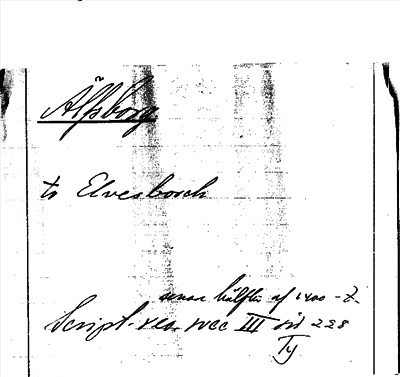 Älfsborg
to Elvesborch
senare hälften af 1400-t.
Script. rer. svec III sid 228
Ty